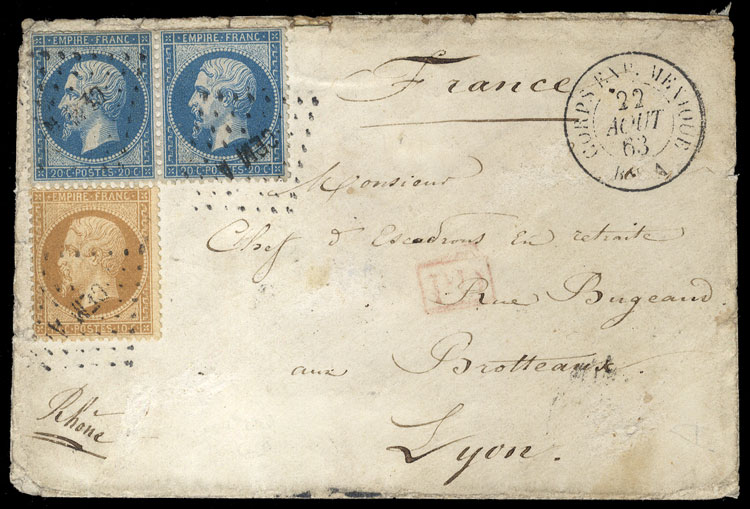 EMPIRE FRANC
EMPIRE FRANC
20 C POSTES 20 C
20 C POSTES 20 C
CEM A
EMPIRE FRANC
POSTES
France
CORPS EXP. MEXIQUE
22
AOUT
63
Bau A
Monsieur
Chef d'Escadrons en retraite
P.D.
Rue Bugeaud
aux Brotteaux
Lyon.
Rhône